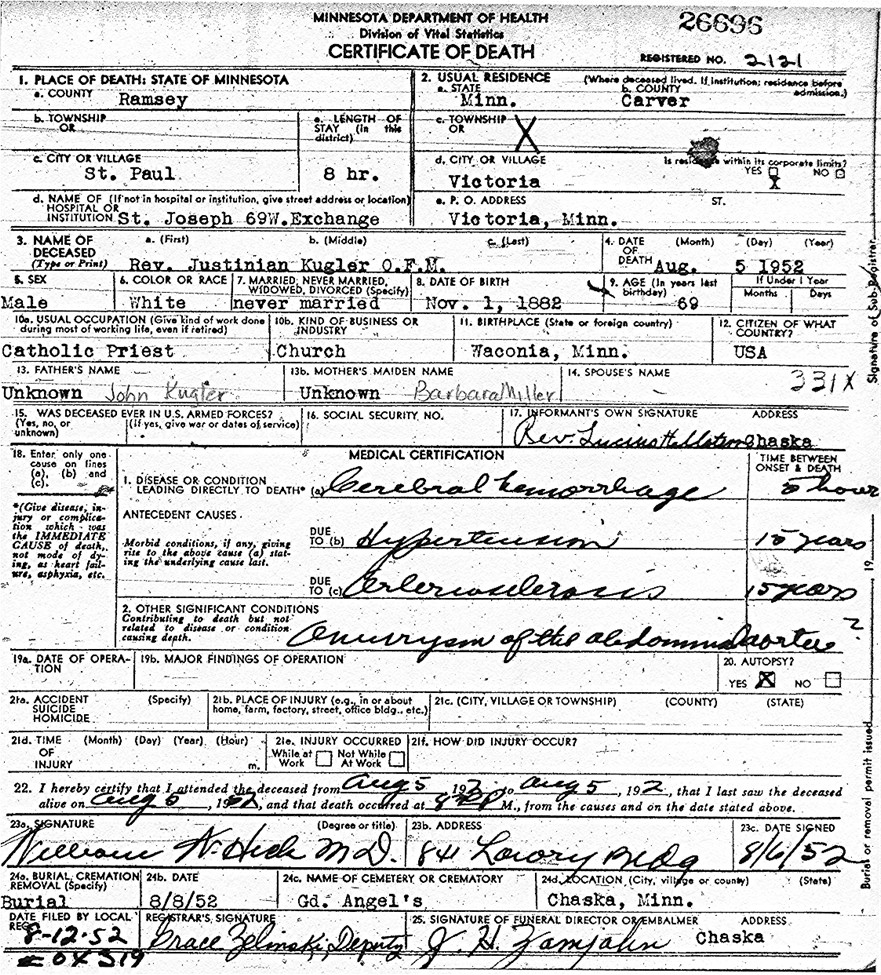 MINNESOTA DEPARTMENT OF HEALTH
Division of Vital Statistics
CERTIFICATE OF DEATH
26696
REGISTERED NO. 2121
1. PLACE OF DEATH: STATE OF MINNESOTA
a. COUNTY Ramsey
2. USUAL RESIDENCE (Where deceased lived. If institution; residence before admission.)
a. STATE Minn. b. COUNTY Carver
b. TOWNSHIP OR
e. LENGTH OF STAY (in this district) 8 hr.
c. TOWNSHIP OR X
c. CITY OR VILLAGE St. Paul
d. CITY OR VILLAGE Victoria
Is residence within its corporate limits? YES X NO
d. NAME OF (If not in hospital or institution, give street address or location) HOSPITAL OR INSTITUTION St. Joseph 69W.Exchange
e. P. O. ADDRESS ST. Victoria, Minn.
3. NAME OF DECEASED (Type or Print) a. (First) b. (Middle) c. (Last)
Rev. Justinian Kugler O.F.M.
4. DATE OF DEATH (Month) (Day) (Year) Aug. 5 1952
5. SEX Male
6. COLOR OR RACE White
7. MARRIED, NEVER MARRIED, WIDOWED, DIVORCED (Specify) never married
8. DATE OF BIRTH Nov. 1, 1882
9. AGE (In years last birthday) 69
If Under 1 Year Months Days
10a. USUAL OCCUPATION (Give kind of work done during most of working life, even if retired) Catholic Priest
10b. KIND OF BUSINESS OR INDUSTRY Church
11. BIRTHPLACE (State or foreign country) Waconia, Minn.
12. CITIZEN OF WHAT COUNTRY? USA
13. FATHER'S NAME Unknown John Kugler
13b. MOTHER'S MAIDEN NAME Unknown Barbara Miller
14. SPOUSE'S NAME
331X
15. WAS DECEASED EVER IN U.S. ARMED FORCES? (Yes, no, or unknown) (If yes, give war or dates of service)
16. SOCIAL SECURITY NO.
17. INFORMANT'S OWN SIGNATURE ADDRESS
Rev. Lucius Chaska
18. Enter only one cause on lines (a), (b) and (c).
MEDICAL CERTIFICATION
TIME BETWEEN ONSET & DEATH
1. DISEASE OR CONDITION LEADING DIRECTLY TO DEATH* (a) Cerebral hemorrhage hour
*(Give disease, injury or complication which was the IMMEDIATE CAUSE of death, not mode of dying, as heart failure, asphyxia, etc.
ANTECEDENT CAUSES
Morbid conditions, if any, giving rise to the above cause (a) stating the underlying cause last.
DUE TO (b) Hypertension 15 years
DUE TO (c) Arteriosclerosis 15 years
2. OTHER SIGNIFICANT CONDITIONS
Contributing to death but not related to disease or condition causing death.
Aneurysm of the abdominal aorta ?
19a. DATE OF OPERATION
19b. MAJOR FINDINGS OF OPERATION
20. AUTOPSY? YES X NO
21a. ACCIDENT SUICIDE HOMICIDE (Specify)
21b. PLACE OF INJURY (e.g., in or about home, farm, factory, street, office bldg., etc.)
21c. (CITY, VILLAGE OR TOWNSHIP) (COUNTY) (STATE)
21d. TIME OF INJURY (Month) (Day) (Year) (Hour) m.
21e. INJURY OCCURRED While at Work Not While At Work
21f. HOW DID INJURY OCCUR?
22. I hereby certify that I attended the deceased from Aug 5, 1952 to Aug 5, 1952, that I last saw the deceased
alive on Aug 5, 1952, and that death occurred at M., from the causes and on the date stated above.
23a. SIGNATURE (Degree or title) William MD.
23b. ADDRESS 841 Lowry Bldg
23c. DATE SIGNED 8/6/52
24a. BURIAL, CREMATION REMOVAL (Specify) Burial
24b. DATE 8/8/52
24c. NAME OF CEMETERY OR CREMATORY Gd. Angel's
24d. LOCATION (City, village or county) (State) Chaska, Minn.
DATE FILED BY LOCAL REG. 8-12-52
REGISTRAR'S SIGNATURE Grace Zelinski, Deputy
25. SIGNATURE OF FUNERAL DIRECTOR OR EMBALMER ADDRESS
J. H. Chaska
Signature of Sub-Registrar
19
Burial or removal permit issued